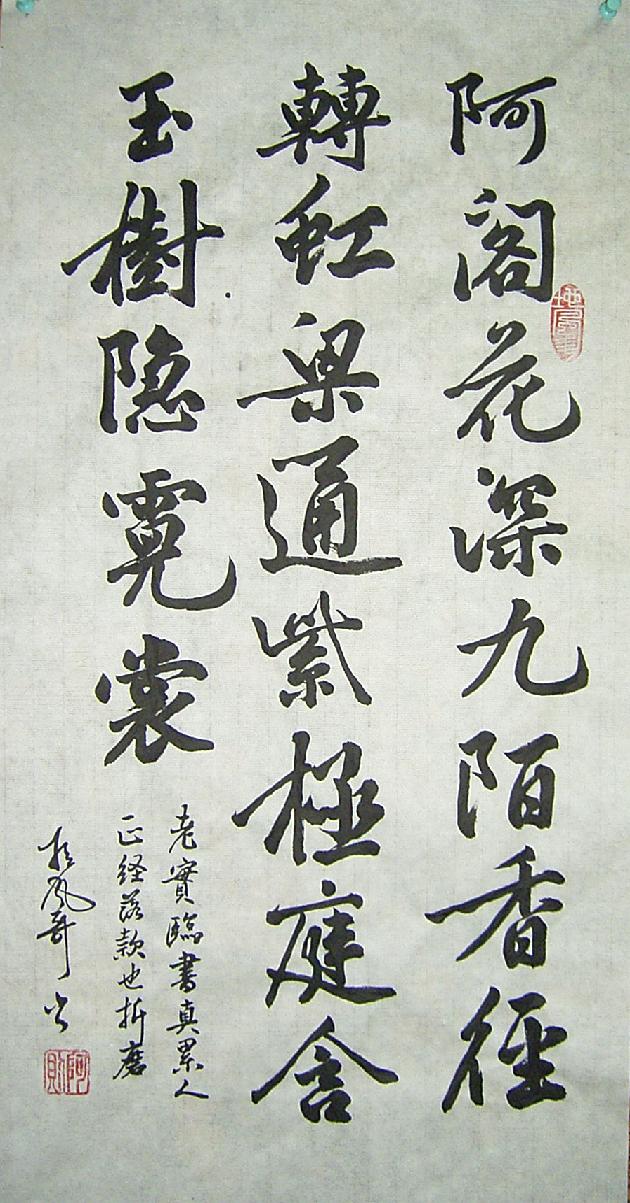 阿阁花深九陌香径
轉虹梁通紫極庭含
玉樹隐霓裳
老實臨書真累人
正经落款也折磨